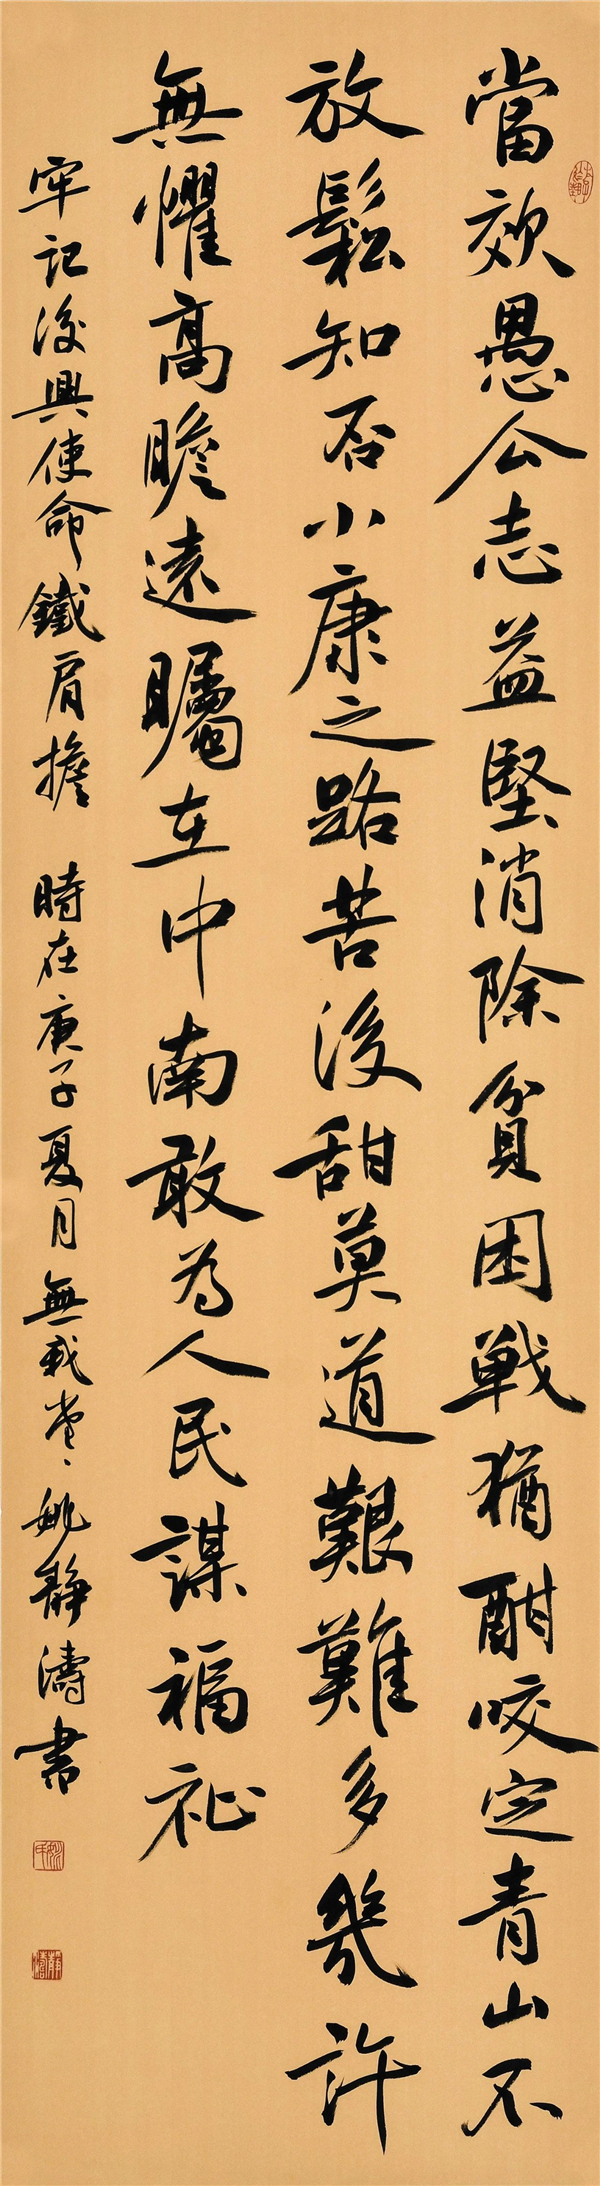 當效愚公志益堅消除貧困戰猶酣咬定青山不
放鬆知否小康之路苦後甜莫道艱難多幾許
無懼高瞻遠矚在中南敢為人民謀福祉
牢記復興使命鐵肩擔 時在庚子夏月無我堂姚靜濤書